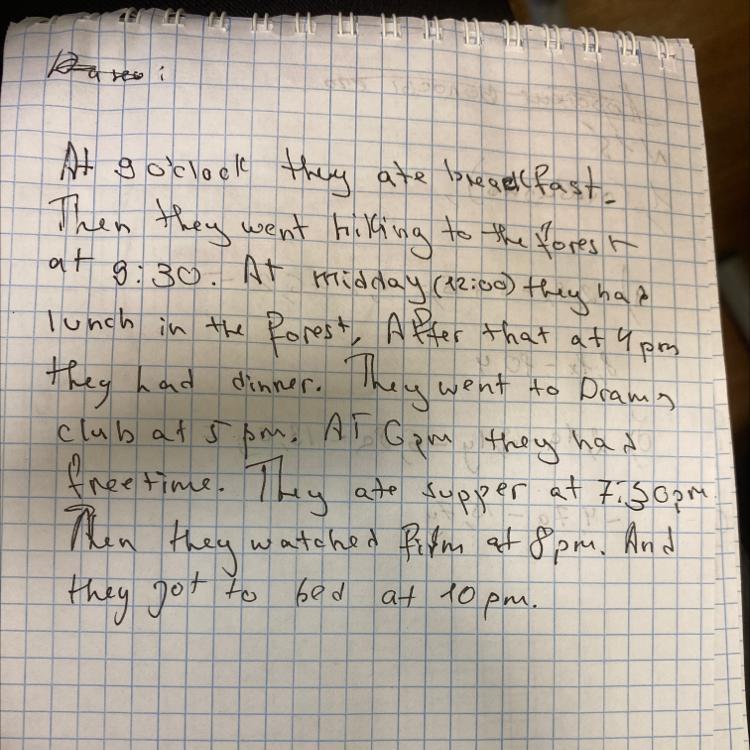 At 9 o'clock they ate breackfast.
Then they went hiking to the forest
at 9:30. At midday (12:00) they had
lunch in the forest. After that at 4 pm
they had dinner. They went to Drama
club at 5 pm. At 6 pm they had
free time. They ate supper at 7:30 pm.
Then they watched film at 8 pm. And
they got to bed at 10 pm.